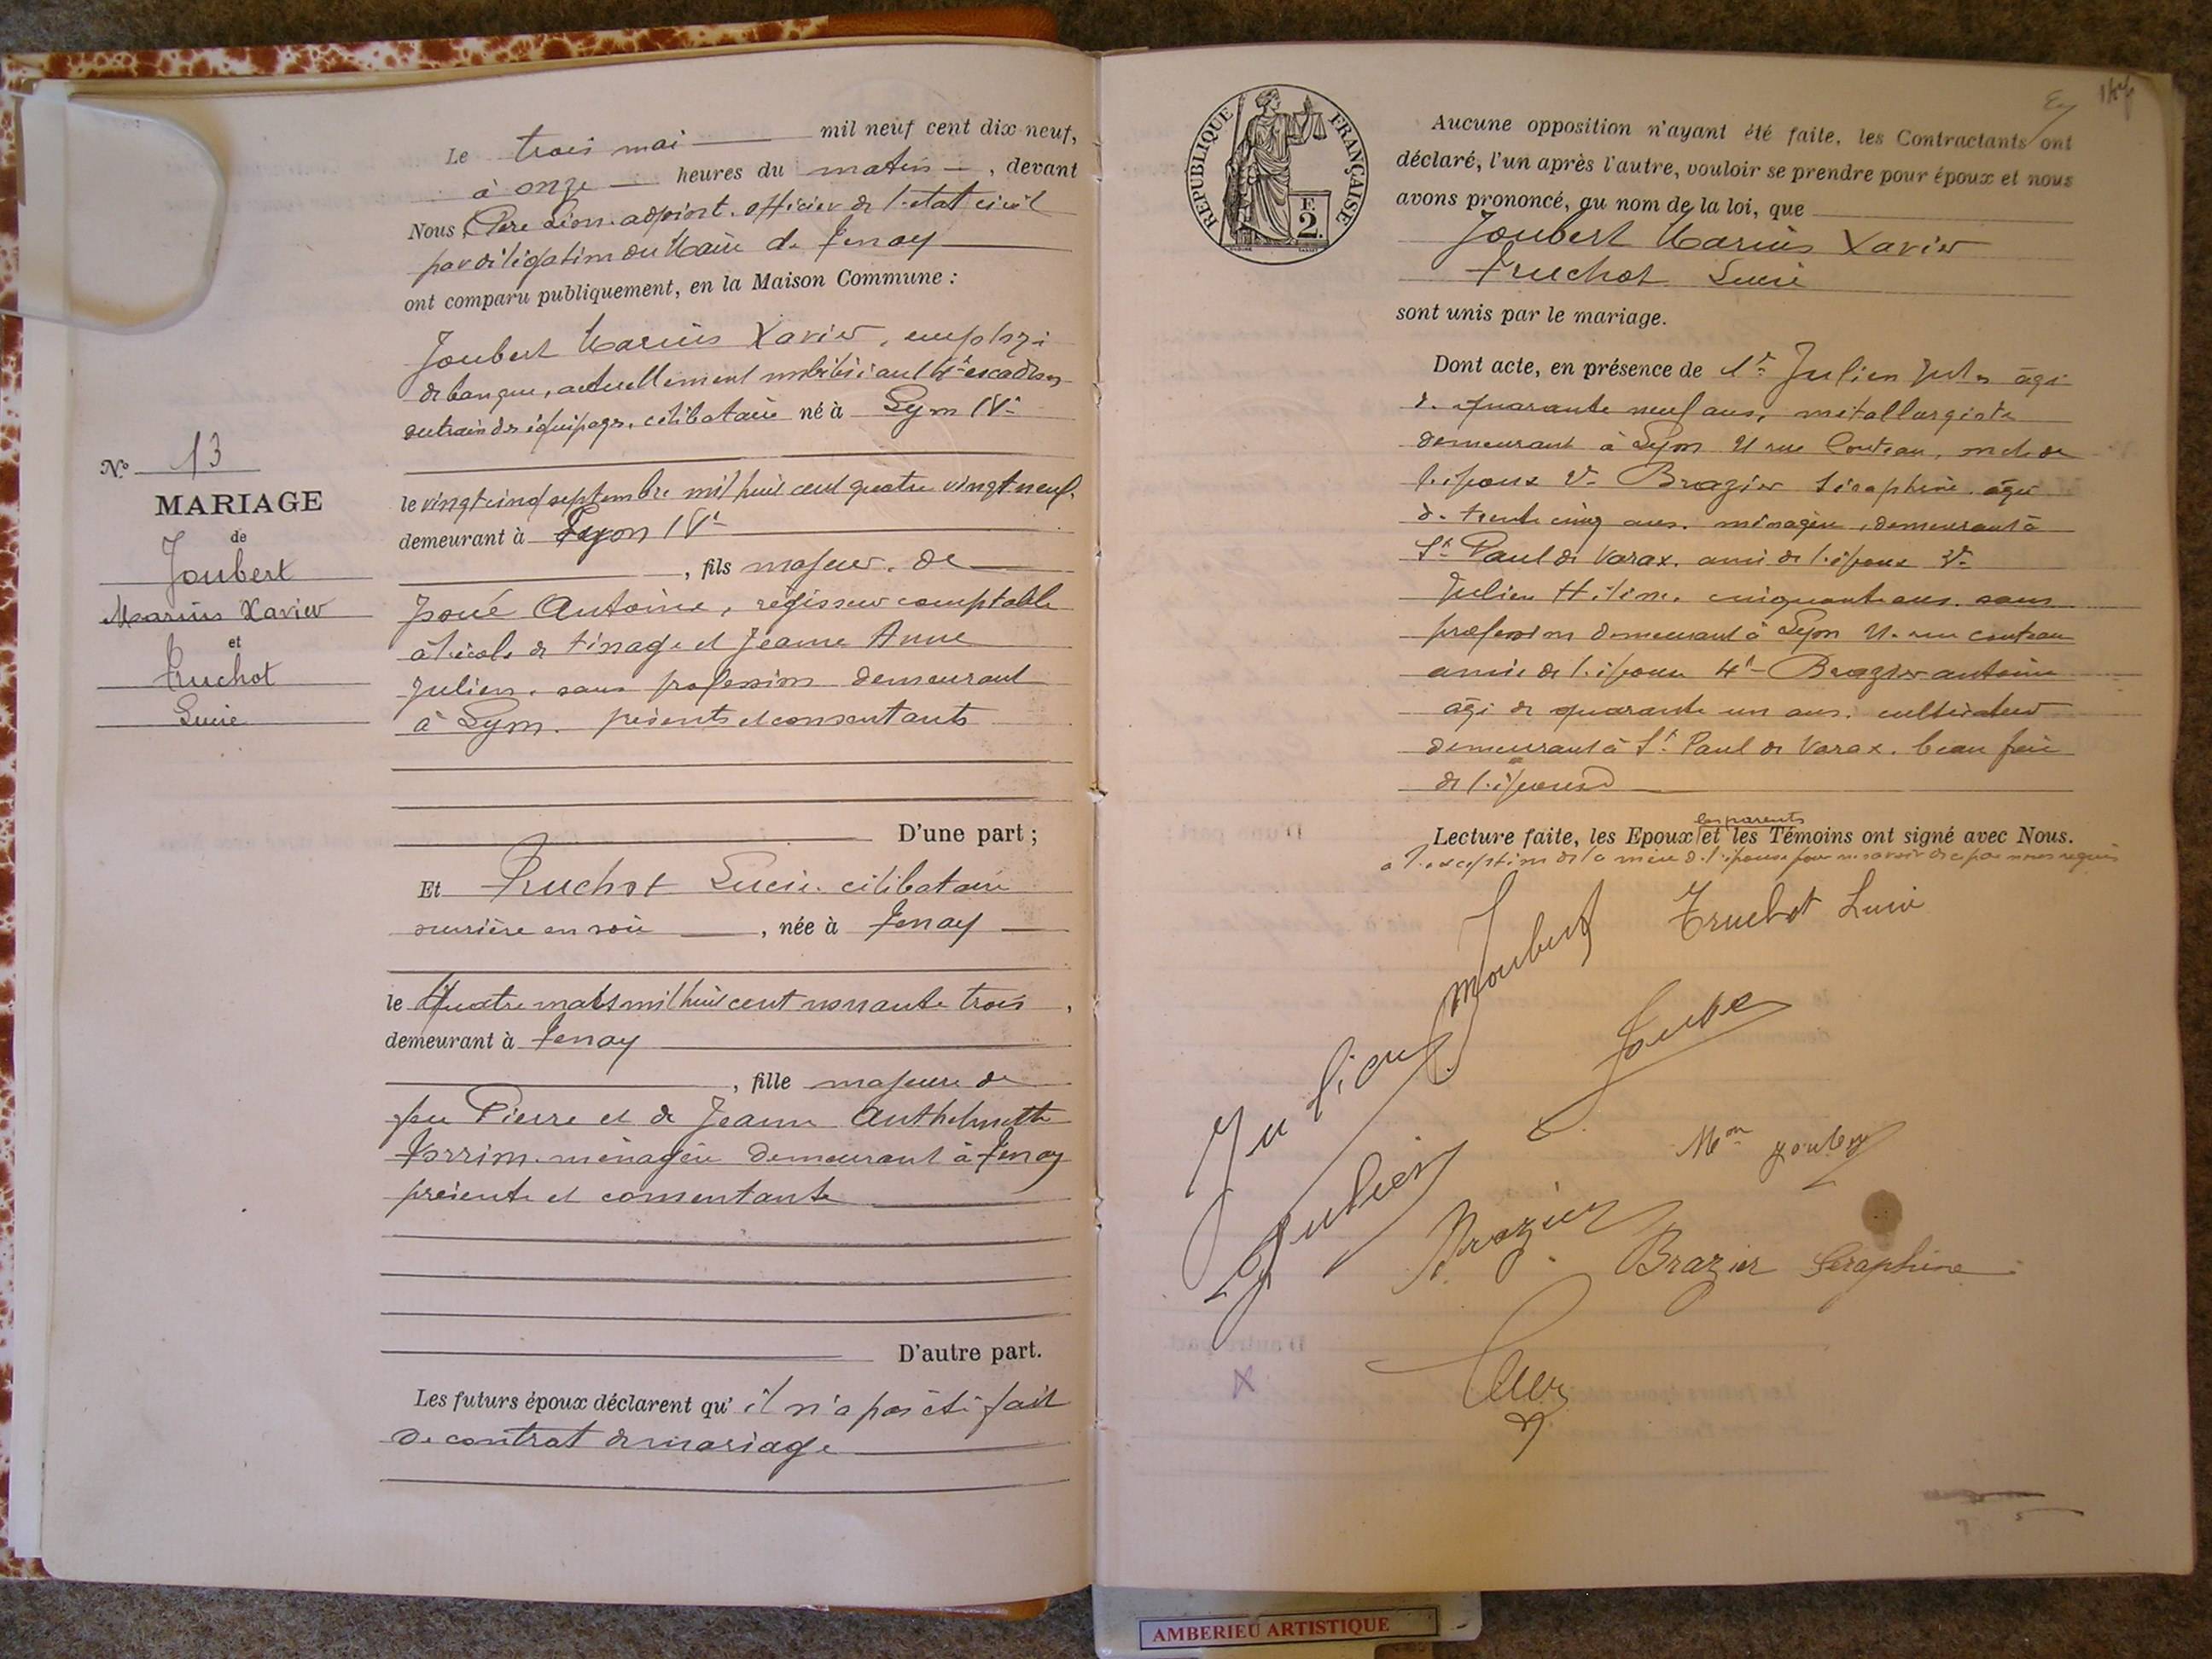 Le trois mai mil neuf cent dix-neuf,
à onze heures du matin, devant
Nous, adjoint. officier de l'état civil
par délégation du Maire de Tenay
ont comparu publiquement, en la Maison Commune :
Joubert Marius Xavier, employé
de banque, actuellement mobilisé au escadron
du train des équipages, célibataire né à Lyon IVe
N° 13
MARIAGE
de
Joubert
Marius Xavier
et
Truchot
Lucie
le vingt cinq septembre mil huit cent quatre vingt neuf,
demeurant à Lyon IVe
, fils majeur, de
Antoine, régisseur comptable
à l'école de tissage et Jeanne Anne
Julien, sans profession demeurant
à Lyon. présents et consentants
D'une part ;
Et Truchot Lucie. célibataire
ouvrière en soie, née à Tenay
le Quatre mars mil huit cent nonante trois,
demeurant à Tenay
, fille majeure de
feu Pierre et de Jeanne Anthelmette
ménagère demeurant à Tenay
présente et consentante
D'autre part.
Les futurs époux déclarent qu'il n'a pas été fait
de contrat de mariage
RÉPUBLIQUE FRANÇAISE
F.
2.
Aucune opposition n'ayant été faite, les Contractants ont
déclaré, l'un après l'autre, vouloir se prendre pour époux et nous
avons prononcé, au nom de la loi, que
Joubert Marius Xavier
Truchot Lucie
sont unis par le mariage.
Dont acte, en présence de 1er Julien Jules âgé
de quarante neuf ans, métallurgiste
demeurant à Lyon 21 rue Couteau, oncle de
l'époux 2e Brazier Séraphine âgée
de trente cinq ans. ménagère, demeurant à
St Paul de Varax. amie de l'époux 3e
Julien cinquante ans. sans
profession demeurant à Lyon 21. rue couteau
amie de l'époux 4e Brazier antoine
âgé de quarante un ans. cultivateur
demeurant à St Paul de Varax. beau frère
de l'épouse
les parents
Lecture faite, les Epoux et les Témoins ont signé avec Nous.
a l'exception de la mère de l'épouse pour ne savoir de ce par nous requis
Joubert Truchot Lucie
Julien
Julien
Brazier
Brazier Séraphine
AMBERIEU ARTISTIQUE